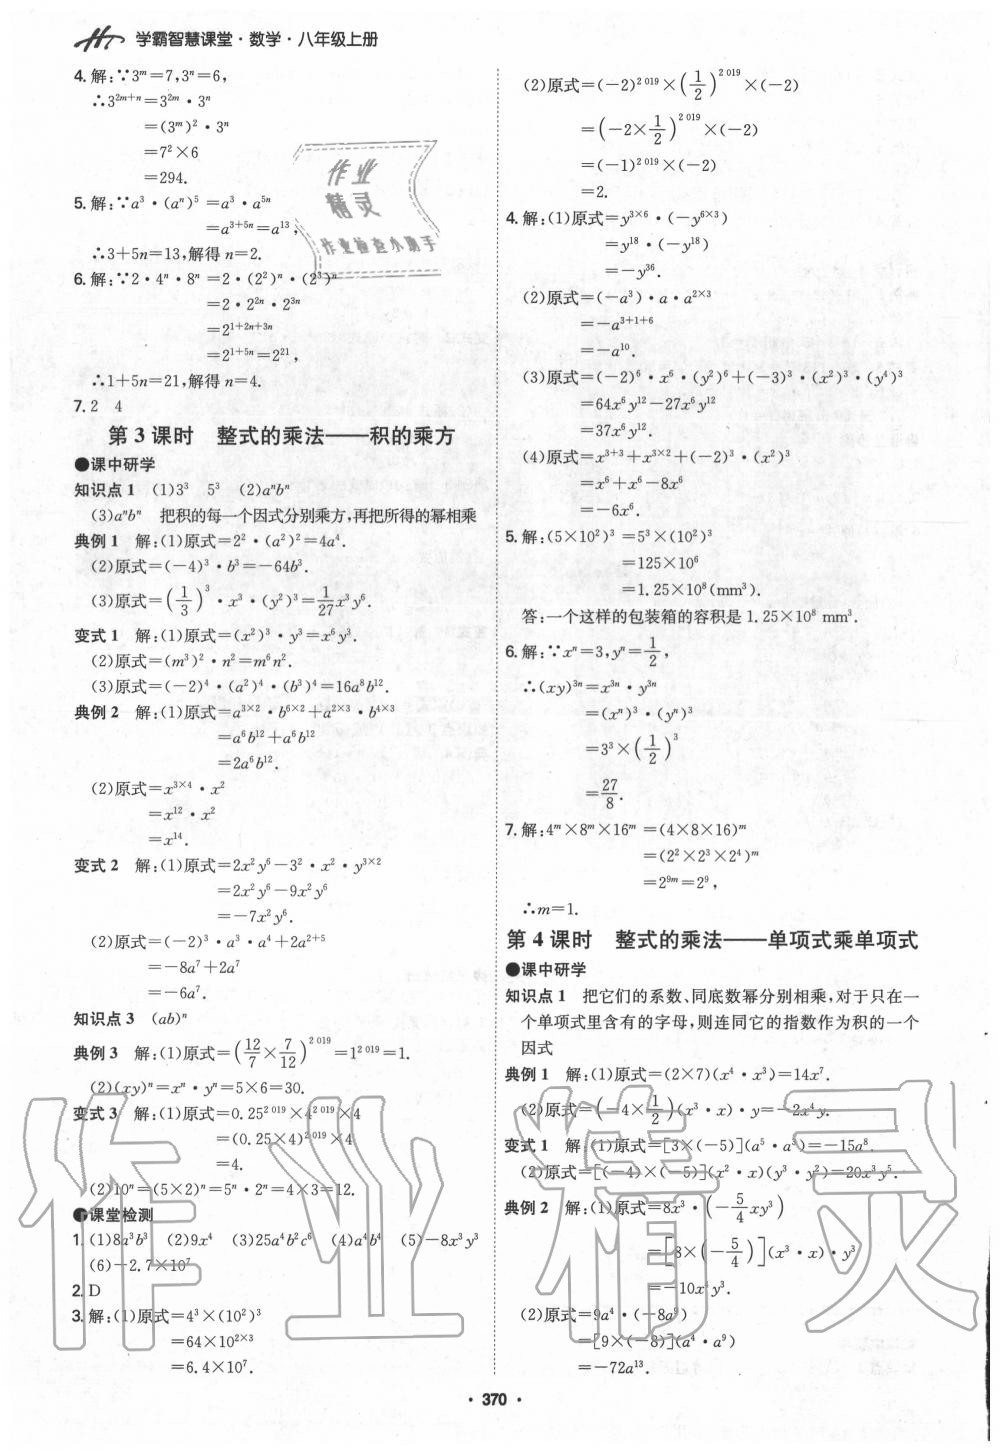 学霸智慧课堂·数学·八年级上册
4.解:∵3^m=7,3^n=6,
∴3^{2m+n}=3^{2m}·3^n
=(3^m)^2·3^n
=7^2×6
=294.
5.解:∵a^3·(a^n)^5=a^3·a^{5n}
=a^{3+5n}=a^{13},
∴3+5n=13,解得n=2.
6.解:∵2·4^n·8^n=2·(2^2)^n·(2^3)^n
=2·2^{2n}·2^{3n}
=2^{1+2n+3n}
=2^{1+5n}=2^{21},
∴1+5n=21,解得n=4.
7.2 4
第3课时 整式的乘法——积的乘方
●课中研学
知识点1 (1)3^3 5^3 (2)a^nb^n
(3)a^nb^n 把积的每一个因式分别乘方,再把所得的幂相乘
典例1 解:(1)原式=2^2·(a^2)^2=4a^4.
(2)原式=(-4)^3·b^3=-64b^3.
(3)原式=(1/3)^3·x^3·(y^2)^3=1/27x^3y^6.
变式1 解:(1)原式=(x^2)^3·y^3=x^6y^3.
(2)原式=(m^3)^2·n^2=m^6n^2.
(3)原式=(-2)^4·(a^2)^4·(b^3)^4=16a^8b^{12}.
典例2 解:(1)原式=a^{3×2}·b^{6×2}+a^{2×3}·b^{4×3}
=a^6b^{12}+a^6b^{12}
=2a^6b^{12}.
(2)原式=x^{3×4}·x^2
=x^{12}·x^2
=x^{14}.
变式2 解:(1)原式=2x^2y^6-3^2·x^2·y^{3×2}
=2x^2y^6-9x^2y^6
=-7x^2y^6.
(2)原式=(-2)^3·a^3·a^4+2a^{2+5}
=-8a^7+2a^7
=-6a^7.
知识点3 (ab)^n
典例3 解:(1)原式=(12/7×7/12)^{2 019}=1^{2 019}=1.
(2)(xy)^n=x^n·y^n=5×6=30.
变式3 解:(1)原式=0.25^{2 019}×4^{2 019}×4
=(0.25×4)^{2 019}×4
=4.
(2)10^n=(5×2)^n=5^n·2^n=4×3=12.
●课堂检测
1.(1)8a^3b^3 (2)9x^4 (3)25a^4b^2c^6 (4)a^4b^4 (5)-8x^3y^3
(6)-2.7×10^7
2.D
3.解:(1)原式=4^3×(10^2)^3
=64×10^{2×3}
=6.4×10^7.
(2)原式=(-2)^{2 019}×(1/2)^{2 019}×(-2)
=(-2×1/2)^{2 019}×(-2)
=(-1)^{2 019}×(-2)
=2.
4.解:(1)原式=y^{3×6}·(-y^{6×3})
=y^{18}·(-y^{18})
=-y^{36}.
(2)原式=(-a^3)·a·a^{2×3}
=-a^{3+1+6}
=-a^{10}.
(3)原式=(-2)^6·x^6·(y^2)^6+(-3)^3·(x^2)^3·(y^4)^3
=64x^6y^{12}-27x^6y^{12}
=37x^6y^{12}.
(4)原式=x^{3+3}+x^{3×2}+(-2)^3·(x^2)^3
=x^6+x^6-8x^6
=-6x^6.
5.解:(5×10^2)^3=5^3×(10^2)^3
=125×10^6
=1.25×10^8(mm^3).
答:一个这样的包装箱的容积是1.25×10^8 mm^3.
6.解:∵x^n=3,y^n=1/2,
∴(xy)^{3n}=x^{3n}·y^{3n}
=(x^n)^3·(y^n)^3
=3^3×(1/2)^3
=27/8.
7.解:4^m×8^m×16^m=(4×8×16)^m
=(2^2×2^3×2^4)^m
=2^{9m}=2^9,
∴m=1.
第4课时 整式的乘法——单项式乘单项式
●课中研学
知识点1 把它们的系数、同底数幂分别相乘,对于只在一
个单项式里含有的字母,则连同它的指数作为积的一个
因式
典例1 解:(1)原式=(2×7)(x^4·x^3)=14x^7.
(2)原式=(-4×1/2)(x^3·x)·y=-2x^4y.
变式1 解:(1)原式=[3×(-5)](a^5·a^3)=-15a^8.
(2)原式=[(-4)×(-5)](x^2·x)(y^3·y^2)=20x^3y^5.
典例2 解:(1)原式=8x^3·(-5/4xy^3)
=[8×(-5/4)](x^3·x)·y^3
=-10x^4y^3.
(2)原式=9a^4·(-8a^9)
=[9×(-8)](a^4·a^9)
=-72a^{13}.
·370·
作业
精灵
作业检查小助手
作业精灵